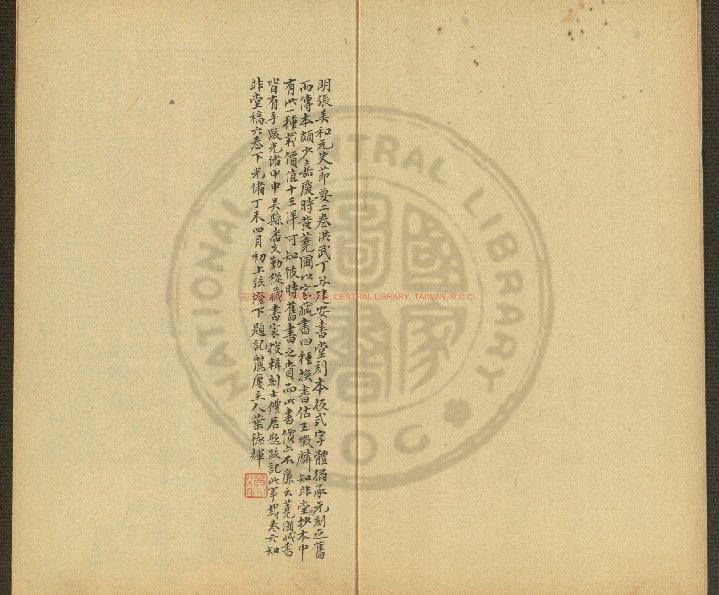 明張美和元史節要二卷洪武丁丑建安書堂刻本板式字體猶承元刻之舊
而傳本頗少嘉慶時黃蕘圃以家藏書四種換書估王徵麟知非堂抄本中
有此一種載價值十三洋可知彼時舊書之貴而此書價亦不廉云蕘圃藏書
皆有手跋光緒甲申吳縣潘文勤從藏書家搜輯刻士禮居題跋記此事載卷六知
非堂稿六卷下光緒丁未四月初上弦燈下題記麗廔主人葉德輝
NATIONAL CENTRAL LIBRARY
NATIONAL CENTRAL LIBRARY, TAIWAN, R.O.C.